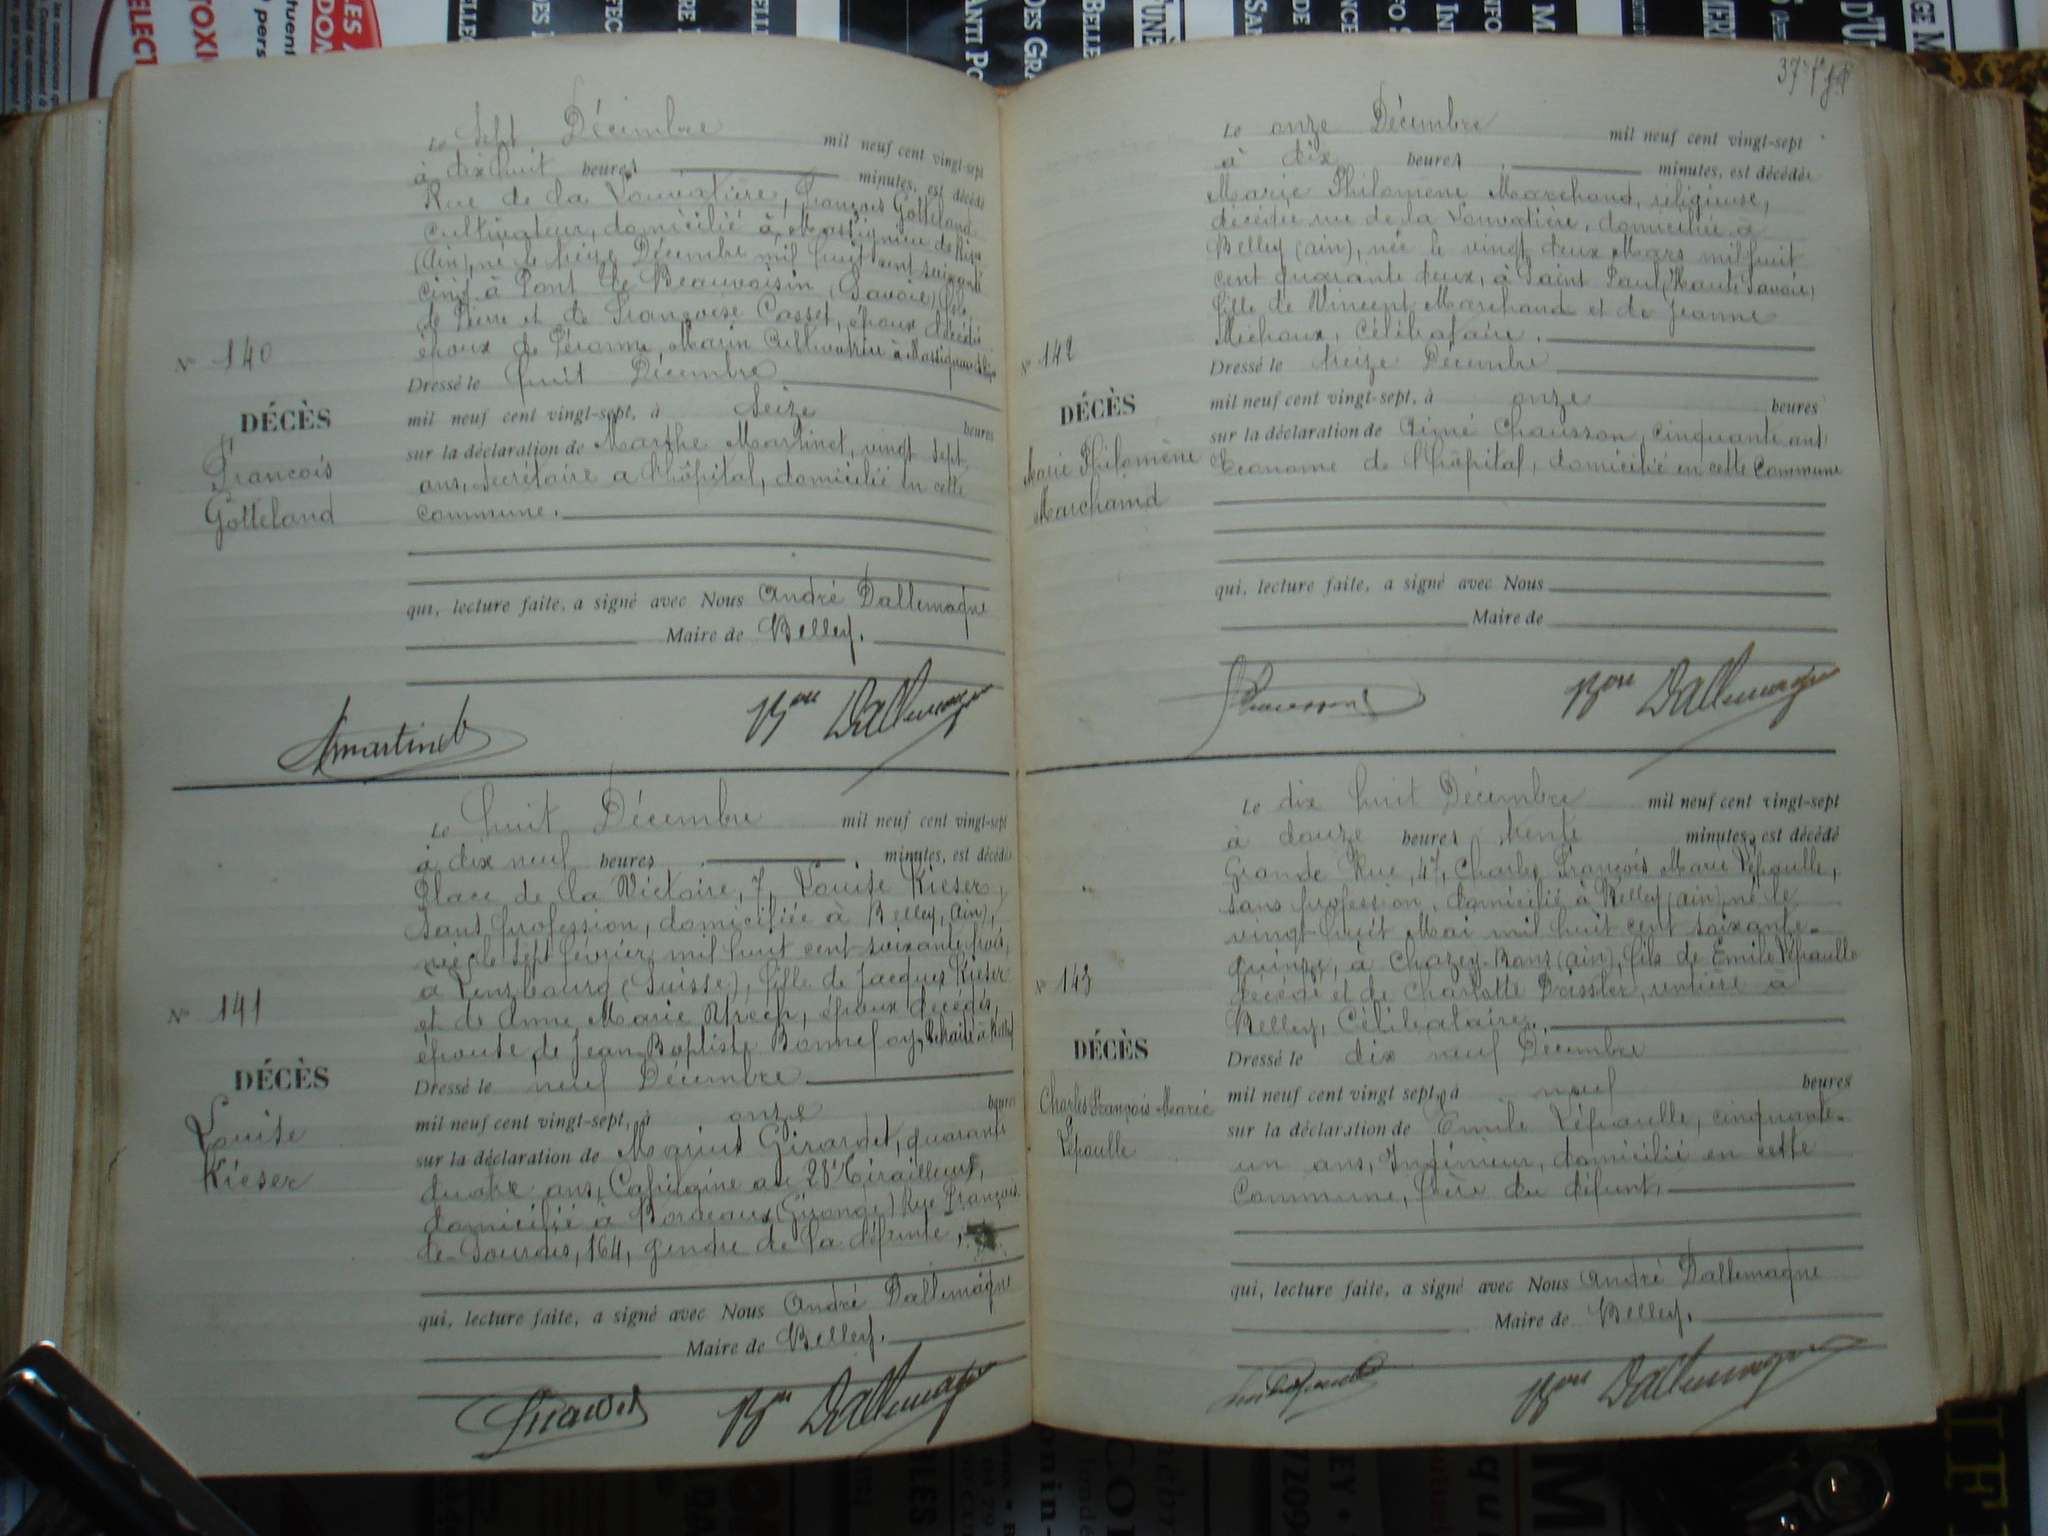 Le Sept Décembre mil neuf cent vingt-sept
à dix huit heures minutes, est décédé
Rue de la Louvatière, François Gotteland
cultivateur, domicilié à Massignieu de Rives
(Ain), né le treize Décembre mil huit cent soixante
cinq à Pont de Beauvoisin (Savoie), fils
de Pierre et de Françoise Casset, époux décédés
époux de Péronne Marin Cultivatrice à Massignieu de Rives
Dressé le huit Décembre
mil neuf cent vingt-sept, à seize heures
sur la déclaration de Marthe Martinet, vingt sept
ans, secrétaire a l'hôpital, domicilié en cette
commune.
qui, lecture faite, a signé avec Nous André Dallemagne
Maire de Belley.
N° 140
DÉCÈS
François
Gotteland
Martinet Bon Dallemagne
Le huit Décembre mil neuf cent vingt-sept
à dix neuf heures minutes, est décédé
Place de la Victoire, 7, Louise Kieser,
sans profession, domiciliée à Belley, (Ain),
née le sept février mil huit cent soixante trois,
à Lenzbourg (Suisse), fille de Jacques Kieser
et de Anne Marie, époux décédés,
épouse de Jean Baptiste Bonnefoy, retraité à Belley
Dressé le neuf Décembre
mil neuf cent vingt-sept, à onze heures
sur la déclaration de Marius Girardet, quarante
quatre ans, Capitaine au 28e Tirailleurs,
domicilié à Bordeaux (Gironde) Rue François
de Sourdis, 164, gendre de la défunte,
qui, lecture faite, a signé avec Nous André Dallemagne
Maire de Belley.
N° 141
DÉCÈS
Louise
Kieser
Girardet Bon Dallemagne
37
Le onze Décembre mil neuf cent vingt-sept
à dix heures minutes, est décédée
Marie Philomène Marchand, religieuse,
décédée rue de la Louvatière, domiciliée à
Belley (ain), née le vingt deux Mars mil huit
cent quarante deux, à Saint Paul (Haute Savoie)
fille de Vincent Marchand et de Jeanne
Michoux, Célibataire.
Dressé le treize Décembre
mil neuf cent vingt-sept, à onze heures
sur la déclaration de Aimé Chausson, cinquante ans
Econome de l'hôpital, domicilié en cette Commune
qui, lecture faite, a signé avec Nous
Maire de
N° 142
DÉCÈS
Marie Philomène
Marchand
Chausson Bon Dallemagne
Le dix huit Décembre mil neuf cent vingt-sept
à douze heures trente minutes, est décédé
Grande Rue, 47, Charles François Marie Lépaulle,
sans profession, domicilié à Belley (ain), né le
vingt huit Mai mil huit cent soixante-
quinze, à Chazey-Bons (ain), fils de Emile Lépaulle
décédé et de Charlotte, rentière à
Belley, Célibataire.
Dressé le dix neuf Décembre
mil neuf cent vingt sept, à neuf heures
sur la déclaration de Emile Lépaulle, cinquante-
un ans, Ingénieur, domicilié en cette
Commune, frère du défunt,
qui, lecture faite, a signé avec Nous André Dallemagne
Maire de Belley.
N° 143
DÉCÈS
Charles François Marie
Lépaulle
Bon Dallemagne